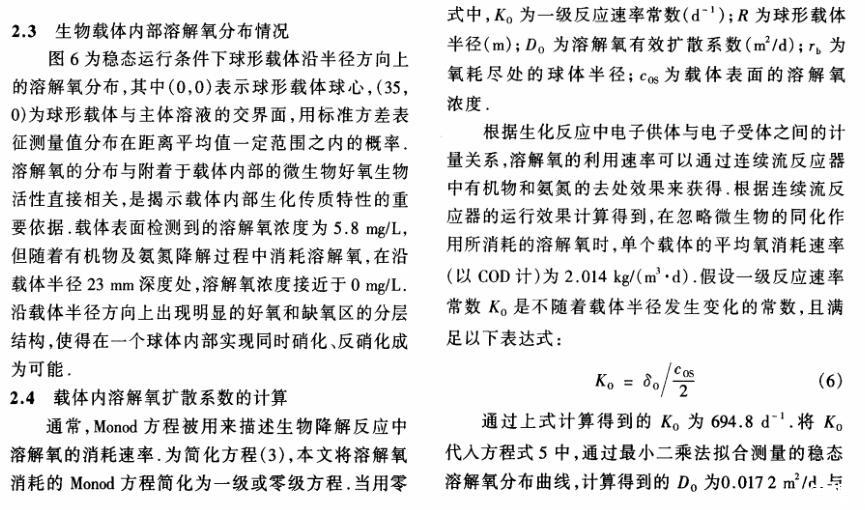 2.3 生物载体内部溶解氧分布情况
图 6 为稳态运行条件下球形载体沿半径方向上
的溶解氧分布,其中(0,0)表示球形载体球心,(35,
0)为球形载体与主体溶液的交界面,用标准方差表
征测量值分布在距离平均值一定范围之内的概率.
溶解氧的分布与附着于载体内部的微生物好氧生物
活性直接相关,是揭示载体内部生化传质特性的重
要依据.载体表面检测到的溶解氧浓度为 5.8 mg/L,
但随着有机物及氨氮降解过程中消耗溶解氧,在沿
载体半径 23 mm 深度处,溶解氧浓度接近于 0 mg/L.
沿载体半径方向上出现明显的好氧和缺氧区的分层
结构,使得在一个球体内部实现同时硝化、反硝化成
为可能.
2.4 载体内溶解氧扩散系数的计算
通常,Monod 方程被用来描述生物降解反应中
溶解氧的消耗速率.为简化方程(3),本文将溶解氧
消耗的 Monod 方程简化为一级或零级方程.当用零
式中,K₀ 为一级反应速率常数(d⁻¹);R 为球形载体
半径(m);D₀ 为溶解氧有效扩散系数(m²/d);r_b 为
氧耗尽处的球体半径;c_os 为载体表面的溶解氧
浓度.
根据生化反应中电子供体与电子受体之间的计
量关系,溶解氧的利用速率可以通过连续流反应器
中有机物和氨氮的去处效果来获得.根据连续流反
应器的运行效果计算得到,在忽略微生物的同化作
用所消耗的溶解氧时,单个载体的平均氧消耗速率
(以 COD 计)为 2.014 kg/(m³·d).假设一级反应速率
常数 K₀ 是不随着载体半径发生变化的常数,且满
足以下表达式:
K₀ = δ₀/(c_os/2) (6)
通过上式计算得到的 K₀ 为 694.8 d⁻¹.将 K₀
代入方程式 5 中,通过最小二乘法拟合测量的稳态
溶解氧分布曲线,计算得到的 D₀ 为0.017 2 m²/d.与